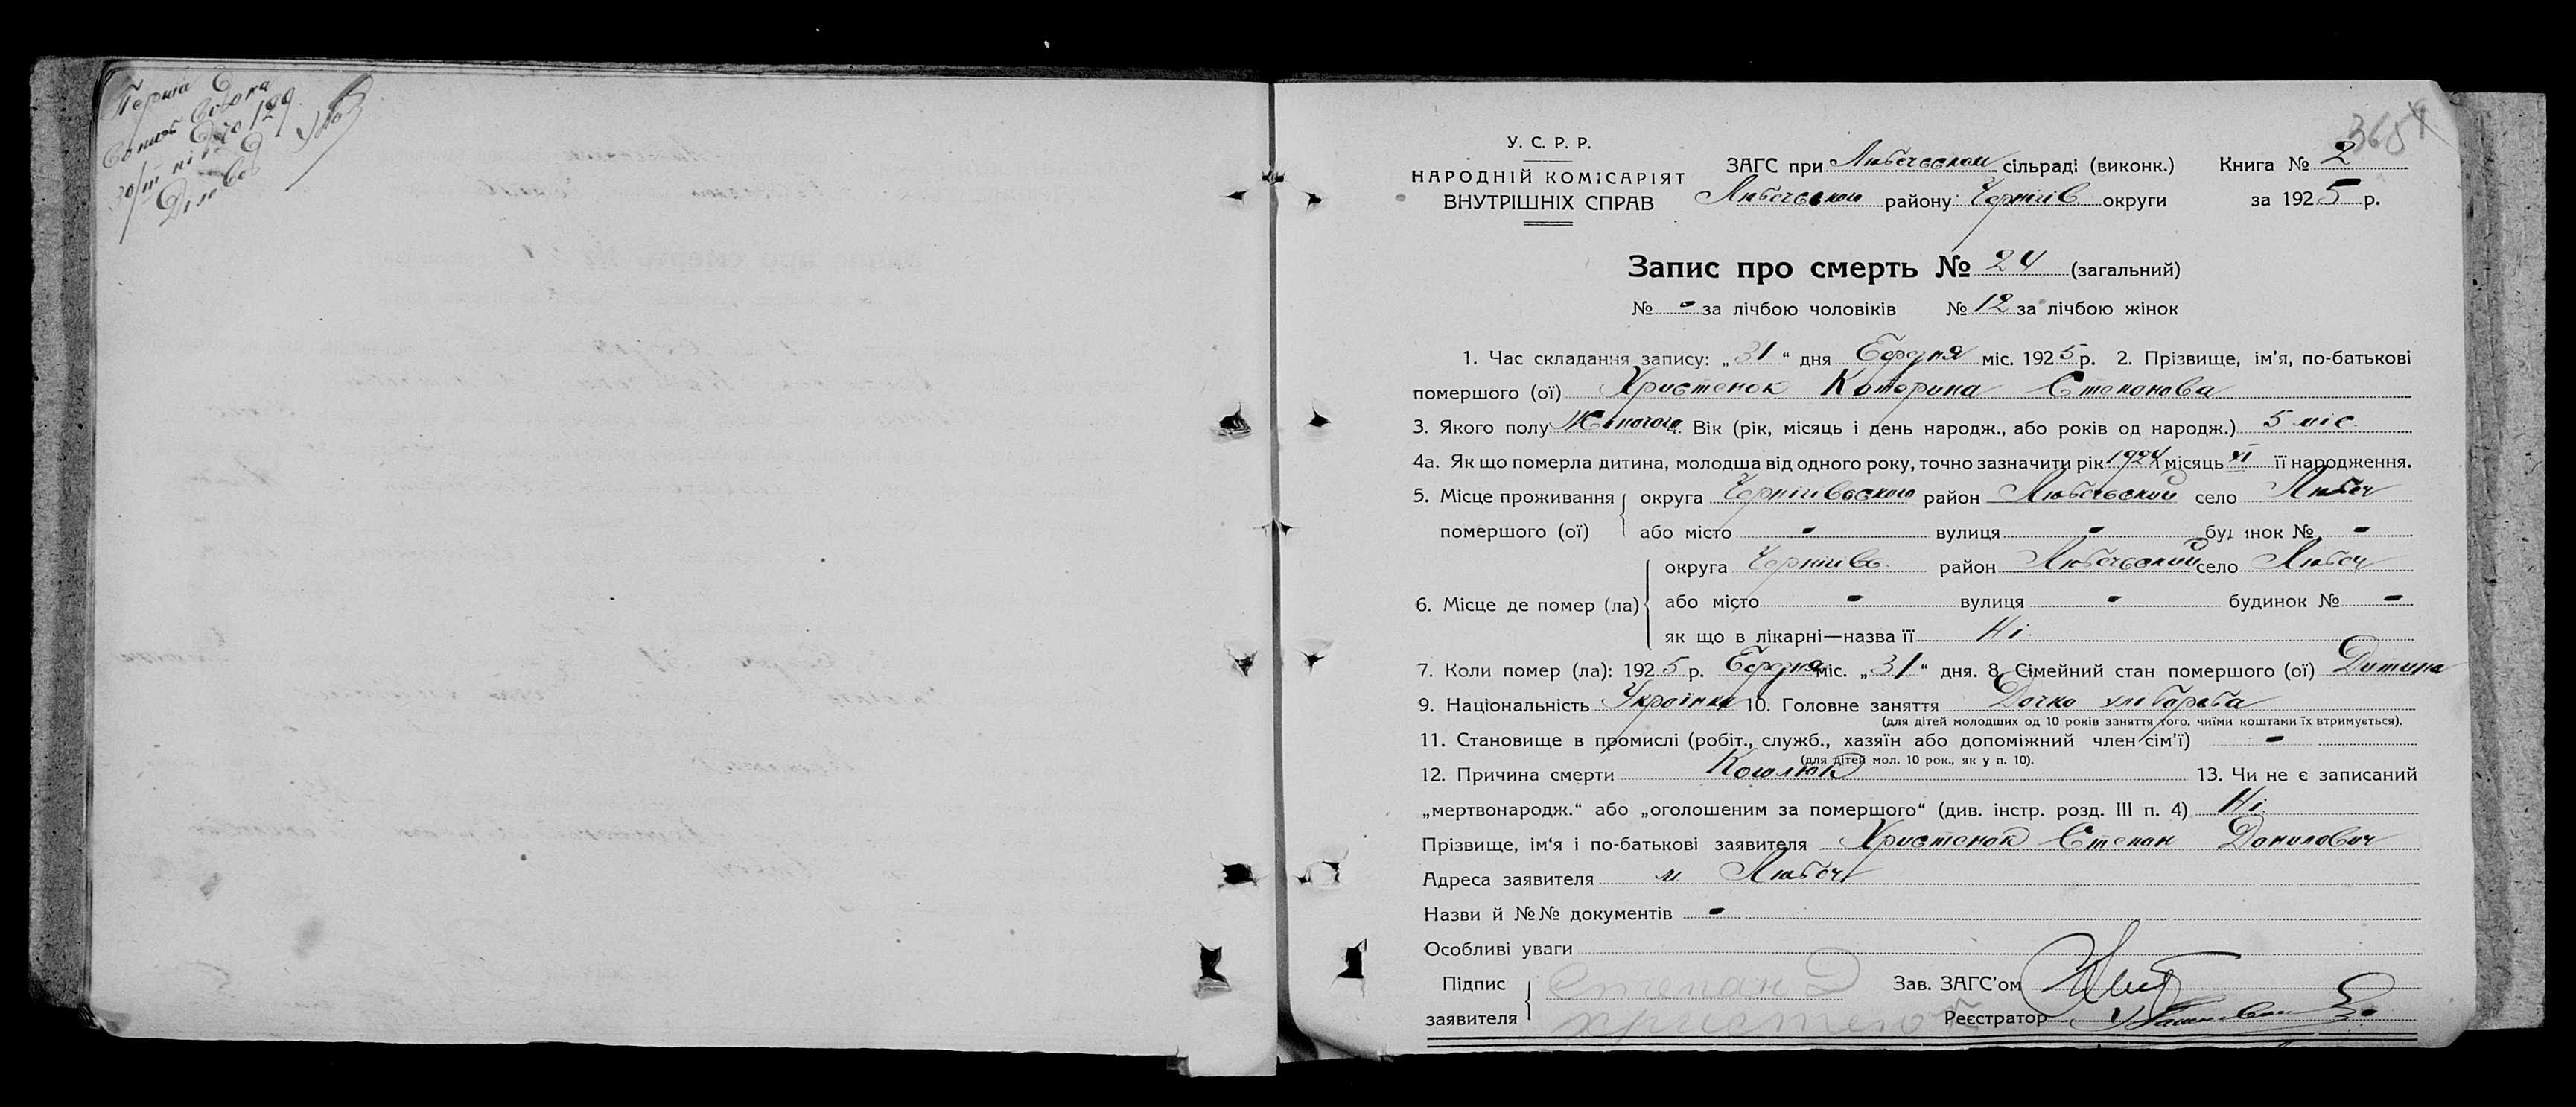 Перша
30/III
Діловод
365
У. С. Р. Р.
НАРОДНІЙ КОМІСАРІЯТ
ВНУТРІШНІХ СПРАВ
ЗАГС при Любечськом сільраді (виконк.) Книга № 2
Любечського району Чернігів. округи за 1925 р.
Запис про смерть № 24 (загальний)
№ - за лічбою чоловіків № 12 за лічбою жінок
1. Час складання запису: „31“ дня міс. 1925 р. 2. Прізвище, ім’я, по-батькові
помершого (ої) Христенок Катерина Степанова
3. Якого полу Жіночого 4. Вік (рік, місяць і день народж., або років од народж.) 5 міс.
4а. Як що померла дитина, молодша від одного року, точно зазначити рік 1924 місяць VI її народження.
5. Місце проживання округа Чернігівського район Любечьский село Любеч
помершого (ої) або місто - вулиця - будинок № -
округа Чернігів. район Любечьский село Любеч
6. Місце де помер (ла) або місто - вулиця - будинок № -
як що в лікарні—назва її Ні.
7. Коли помер (ла): 1925 р. міс. „31“ дня. 8. Сімейний стан помершого (ої) Дитина
9. Національність Українка 10. Головне заняття Дочка хлібороба
(для дітей молодших од 10 років заняття того, чиїми коштами їх втримується).
11. Становище в промислі (робіт., служб., хазяїн або допоміжний член сім’ї) -
(для дітей мол. 10 рок., як у п. 10).
12. Причина смерти Коголюш 13. Чи не є записаний
„мертвонародж.“ або „оголошеним за помершого“ (див. інстр. розд. III п. 4) Ні.
Прізвище, ім‘я і по-батькові заявителя Христенок Степан Данилович
Адреса заявителя м. Любеч
Назви й №№ документів -
Особливі уваги
Підпис Степан Д Зав. ЗАГС’ом
заявителя Христенок Реєстратор